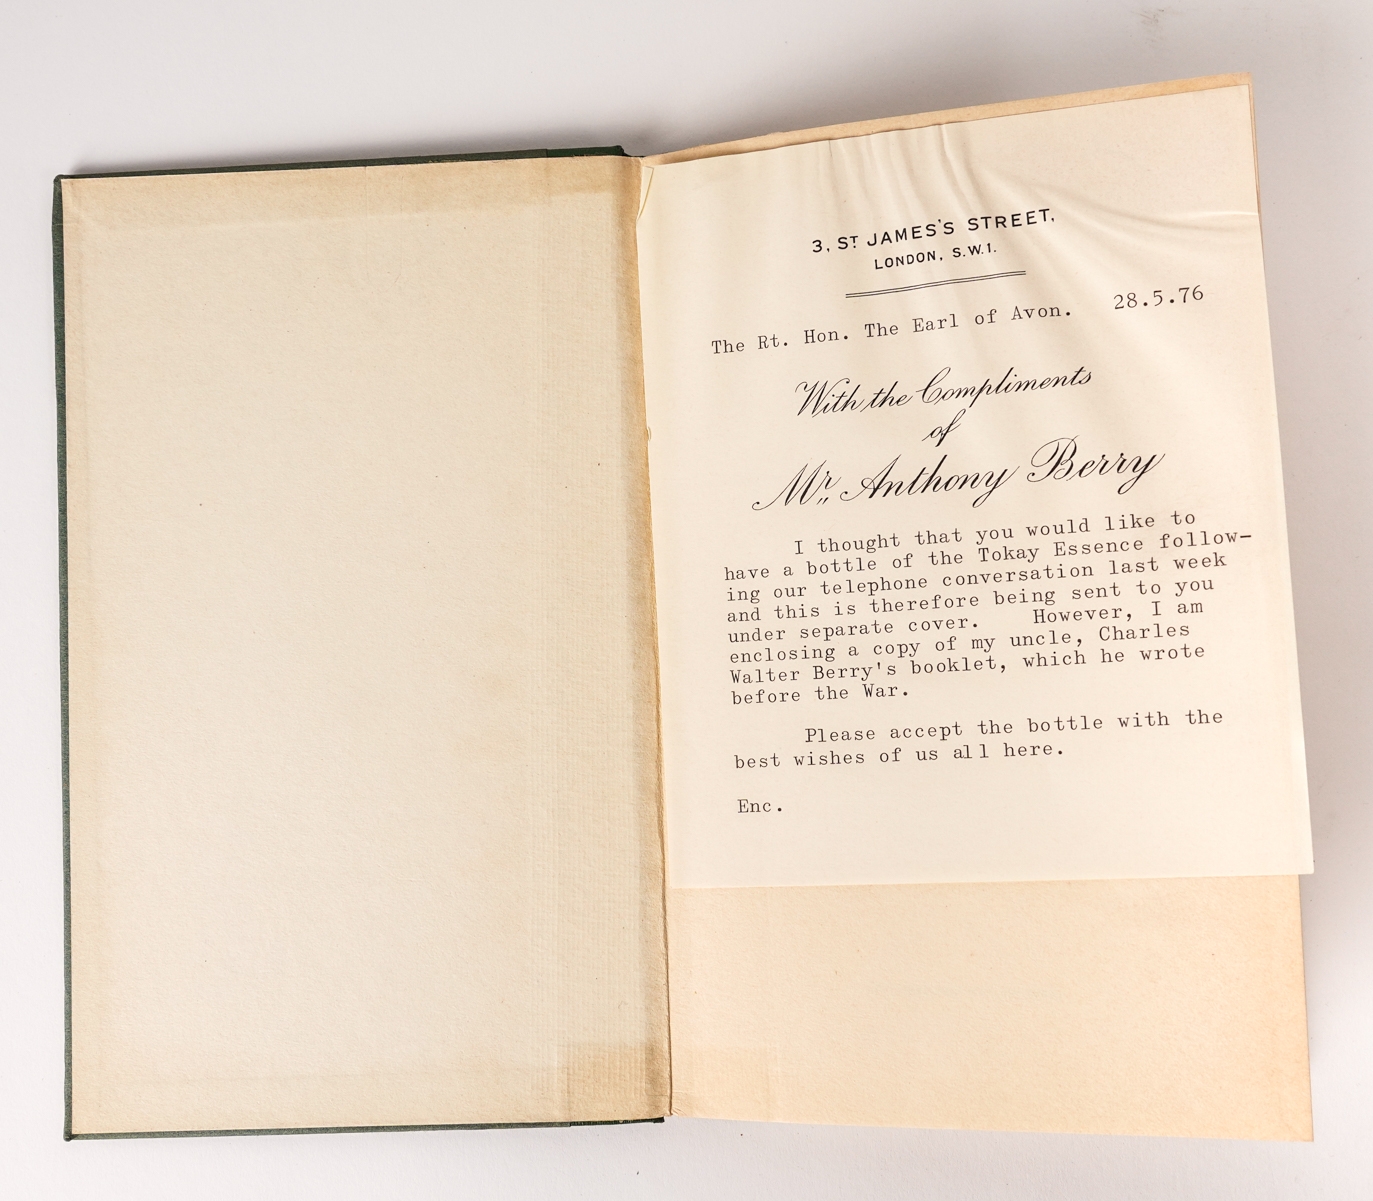 3, ST JAMES'S STREET,
LONDON, S.W.1.
28.5.76
The Rt. Hon. The Earl of Avon.
With the Compliments
of
Mr. Anthony Berry
I thought that you would like to
have a bottle of the Tokay Essence follow-
ing our telephone conversation last week
and this is therefore being sent to you
under separate cover. However, I am
enclosing a copy of my uncle, Charles
Walter Berry's booklet, which he wrote
before the War.
Please accept the bottle with the
best wishes of us all here.
Enc.